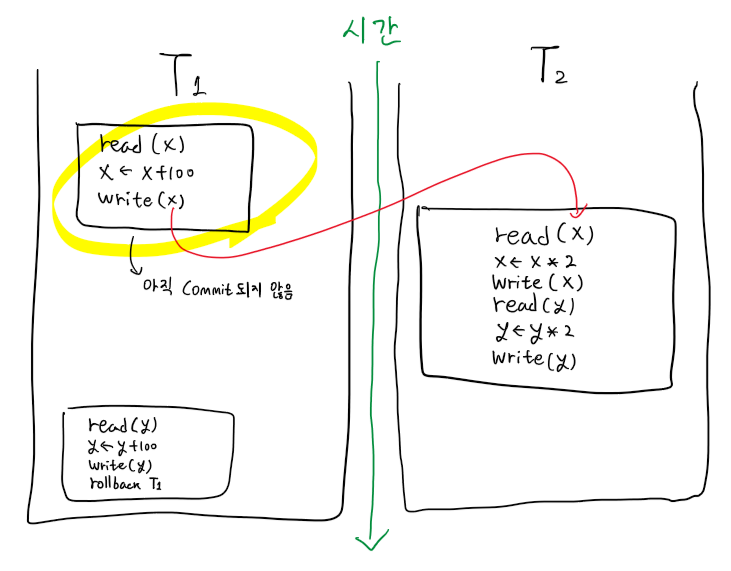 시간
T1
read(x)
x ← x+100
write(x)
아직 Commit되지 않음
read(y)
y ← y+100
write(y)
rollback T1
T2
read(x)
x ← x * 2
write(x)
read(y)
y ← y * 2
write(y)